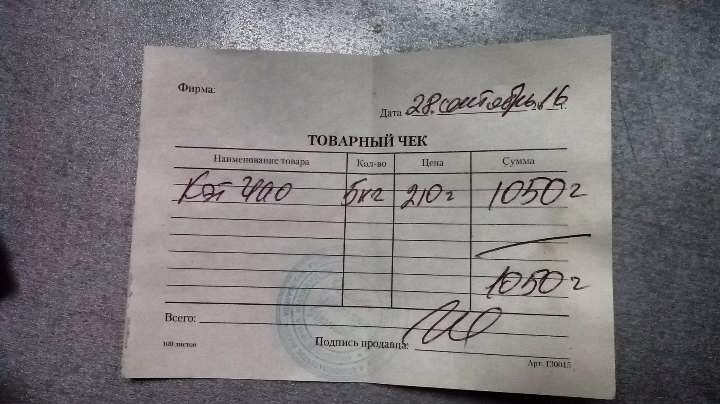 Фирма:
Дата 28 сентябрь 16 г.
ТОВАРНЫЙ ЧЕК
Наименование товара Кол-во Цена Сумма
Кэт Чао 5кг 210г 1050г
1050г
Всего:
Подпись продавца:
100 листов
Арт. 130015